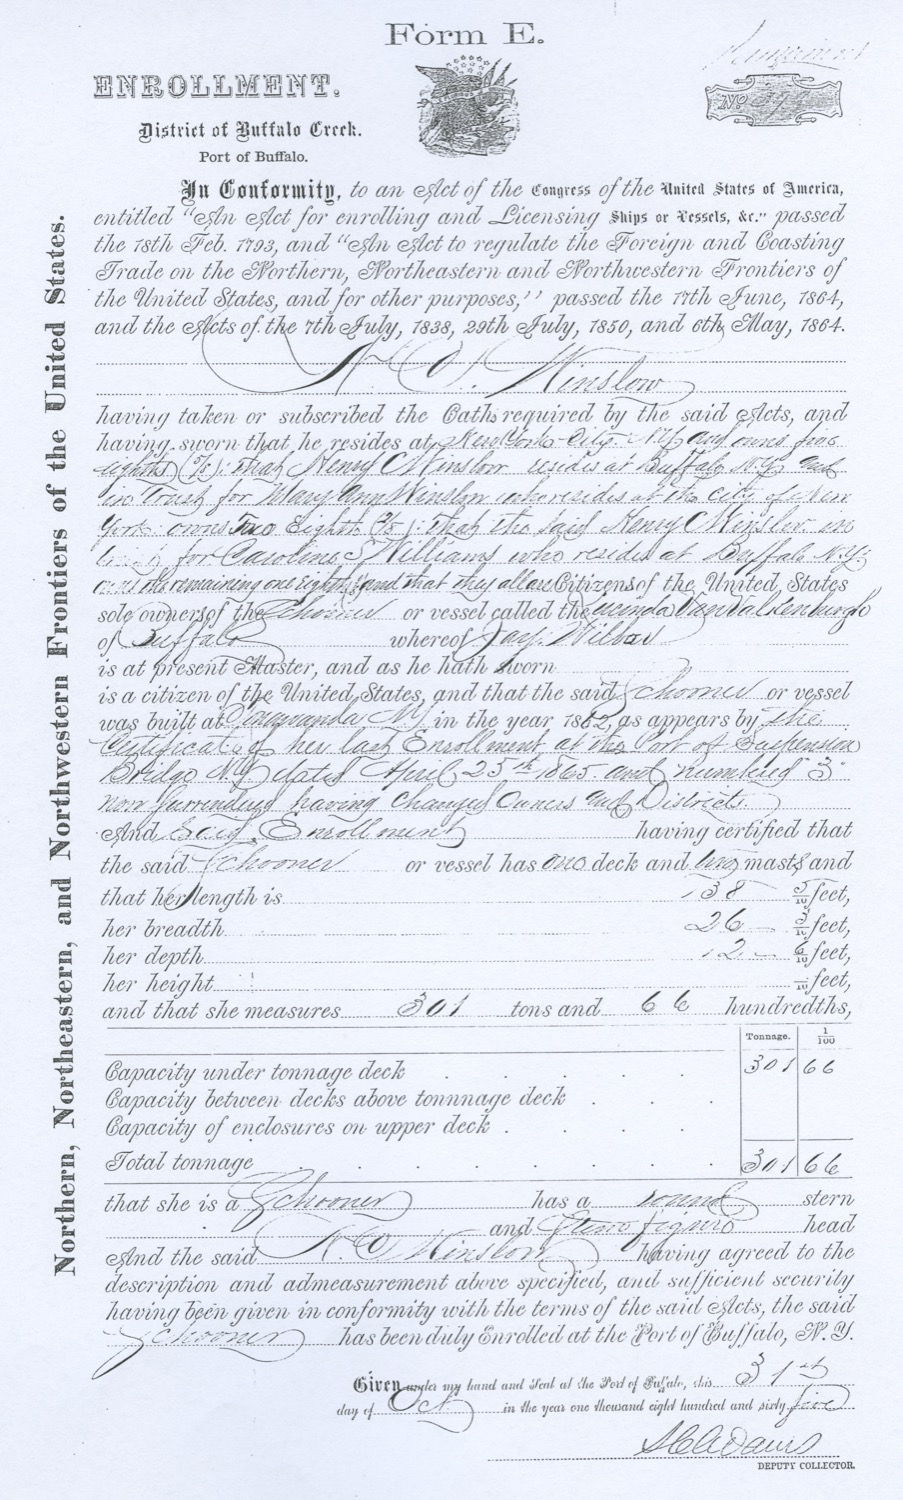 Form E.
Permanent
ENROLLMENT.
No.
District of Buffalo Creek.
Port of Buffalo.
Northern, Northeastern, and Northwestern Frontiers of the United States.
In Conformity, to an Act of the Congress of the United States of America,
entitled "An Act for enrolling and Licensing Ships or Vessels, &c." passed
the 18th Feb. 1793, and "An Act to regulate the Foreign and Coasting
Trade on the Northern, Northeastern and Northwestern Frontiers of
the United States, and for other purposes," passed the 17th June, 1864,
and the Acts of the 7th July, 1838, 29th July, 1850, and 6th May, 1864.
N C Winslow
having taken or subscribed the Oaths required by the said Acts, and
having sworn that he resides at New York City N.Y. and owns five
eighths (5/8); that Henry C Winslow resides at Buffalo N.Y. and
in Trust for Mary Ann Winslow who resides at the city of New
York owns Two Eighths (2/8); That the said Henry C Winslow in
trust for Caroline S Williams who resides at Buffalo N.Y.
owns the remaining one Eighth and that they all are Citizens of the United States
sole owners of the Schooner or vessel called the Lucinda Van Valkenburgh
of Buffalo whereof Jay Wilbar
is at present Master, and as he hath sworn
is a citizen of the United States, and that the said Schooner or vessel
was built at Tonawanda N.Y. in the year 1862, as appears by the
Certificate of her last Enrollment at the Port of Suspension
Bridge N.Y. dated April 25th 1865 and numbered "3"
now surrendered having changed Owners and Districts.
And Said Enrollment having certified that
the said Schooner or vessel has one deck and two masts and
that her length is 138 5/10 feet,
her breadth 26 feet,
her depth 12 6/10 feet,
her height /10 feet,
and that she measures 301 tons and 66 hundredths,
Tonnage. 1/100
Capacity under tonnage deck . . . . 301 66
Capacity between decks above tonnnage deck . . .
Capacity of enclosures on upper deck . . . .
Total tonnage . . . . . . 301 66
that she is a Schooner has a round stern
and figure head
And the said N. C. Winslow having agreed to the
description and admeasurement above specified, and sufficient security
having been given in conformity with the terms of the said Acts, the said
Schooner has been duly Enrolled at the Port of Buffalo, N. Y.
Given under my hand and Seal at the Port of Buffalo, this 31st
day of Oct in the year one thousand eight hundred and sixty five
Adams
DEPUTY COLLECTOR.